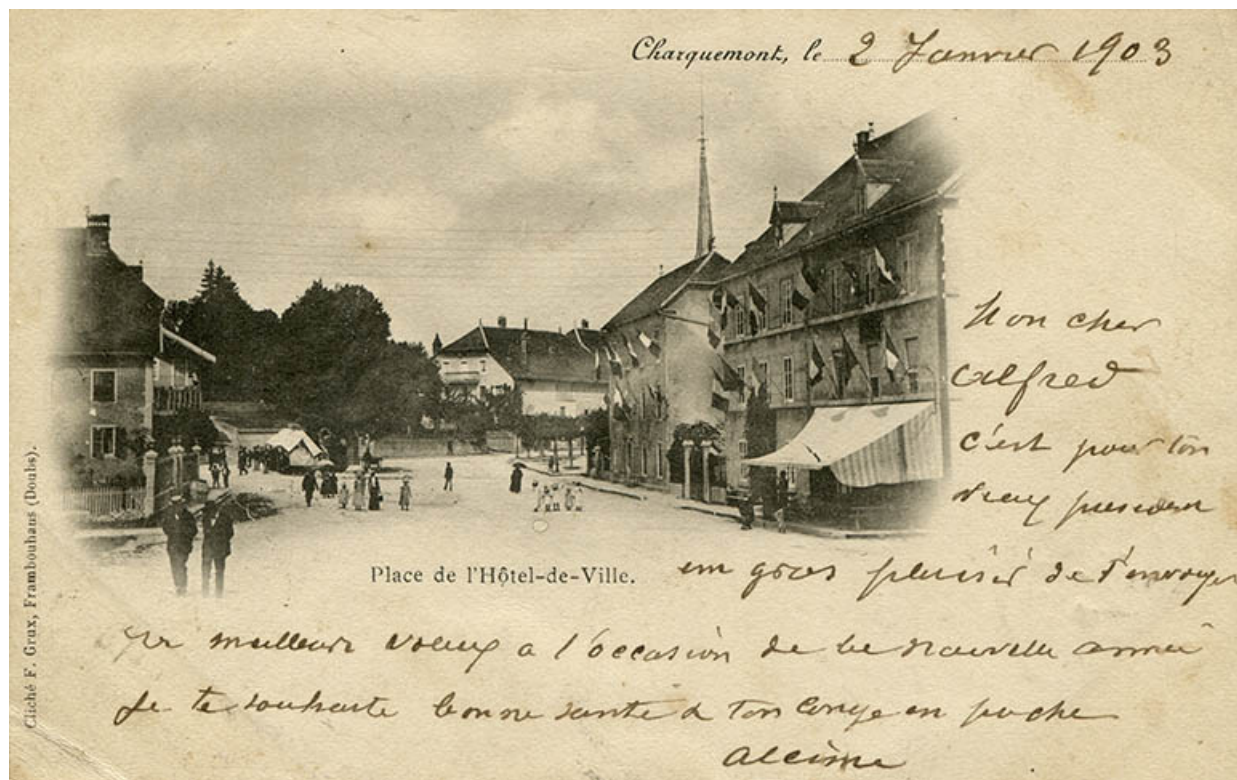 Charquemont, le 2 Janvier 1903
Mon cher
Alfred
c'est pour ton
vieux
Place de l'Hôtel-de-Ville.
un gros plaisir de t'envoyer
meilleurs voeux a l'occasion de la nouvelle année
Je te souhaite bonne santé & ton congé en poche
Alcime
Cliché F. Grux, Frambouhans (Doubs).